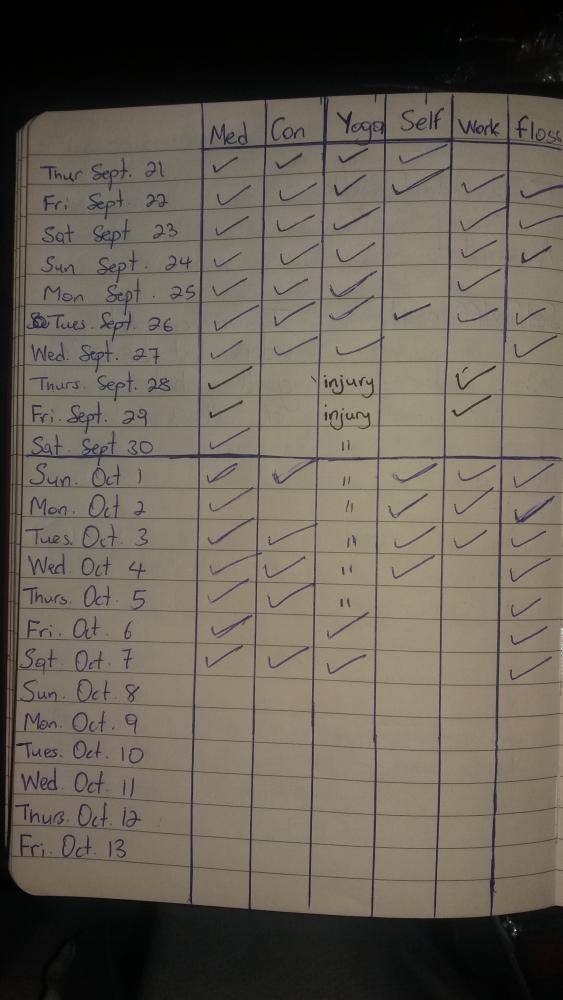 Med Con Yoga Self Work Floss
Thur Sept. 21 ✓ ✓ ✓ ✓
Fri Sept. 22 ✓ ✓ ✓ ✓ ✓ ✓
Sat Sept 23 ✓ ✓ ✓ ✓ ✓
Sun Sept. 24 ✓ ✓ ✓ ✓ ✓
Mon Sept. 25 ✓ ✓ ✓ ✓
Tues. Sept. 26 ✓ ✓ ✓ ✓ ✓ ✓
Wed. Sept. 27 ✓ ✓ ✓ ✓
Thurs. Sept. 28 ✓ injury ✓
Fri. Sept. 29 ✓ injury ✓
Sat. Sept 30 ✓ "
Sun. Oct 1 ✓ ✓ " ✓ ✓ ✓
Mon. Oct 2 ✓ " ✓ ✓ ✓
Tues. Oct. 3 ✓ ✓ " ✓ ✓ ✓
Wed. Oct 4 ✓ ✓ " ✓ ✓
Thurs. Oct. 5 ✓ ✓ " ✓
Fri. Oct. 6 ✓ ✓ ✓
Sat. Oct. 7 ✓ ✓ ✓ ✓
Sun. Oct. 8
Mon. Oct. 9
Tues. Oct. 10
Wed. Oct. 11
Thurs. Oct. 12
Fri. Oct. 13